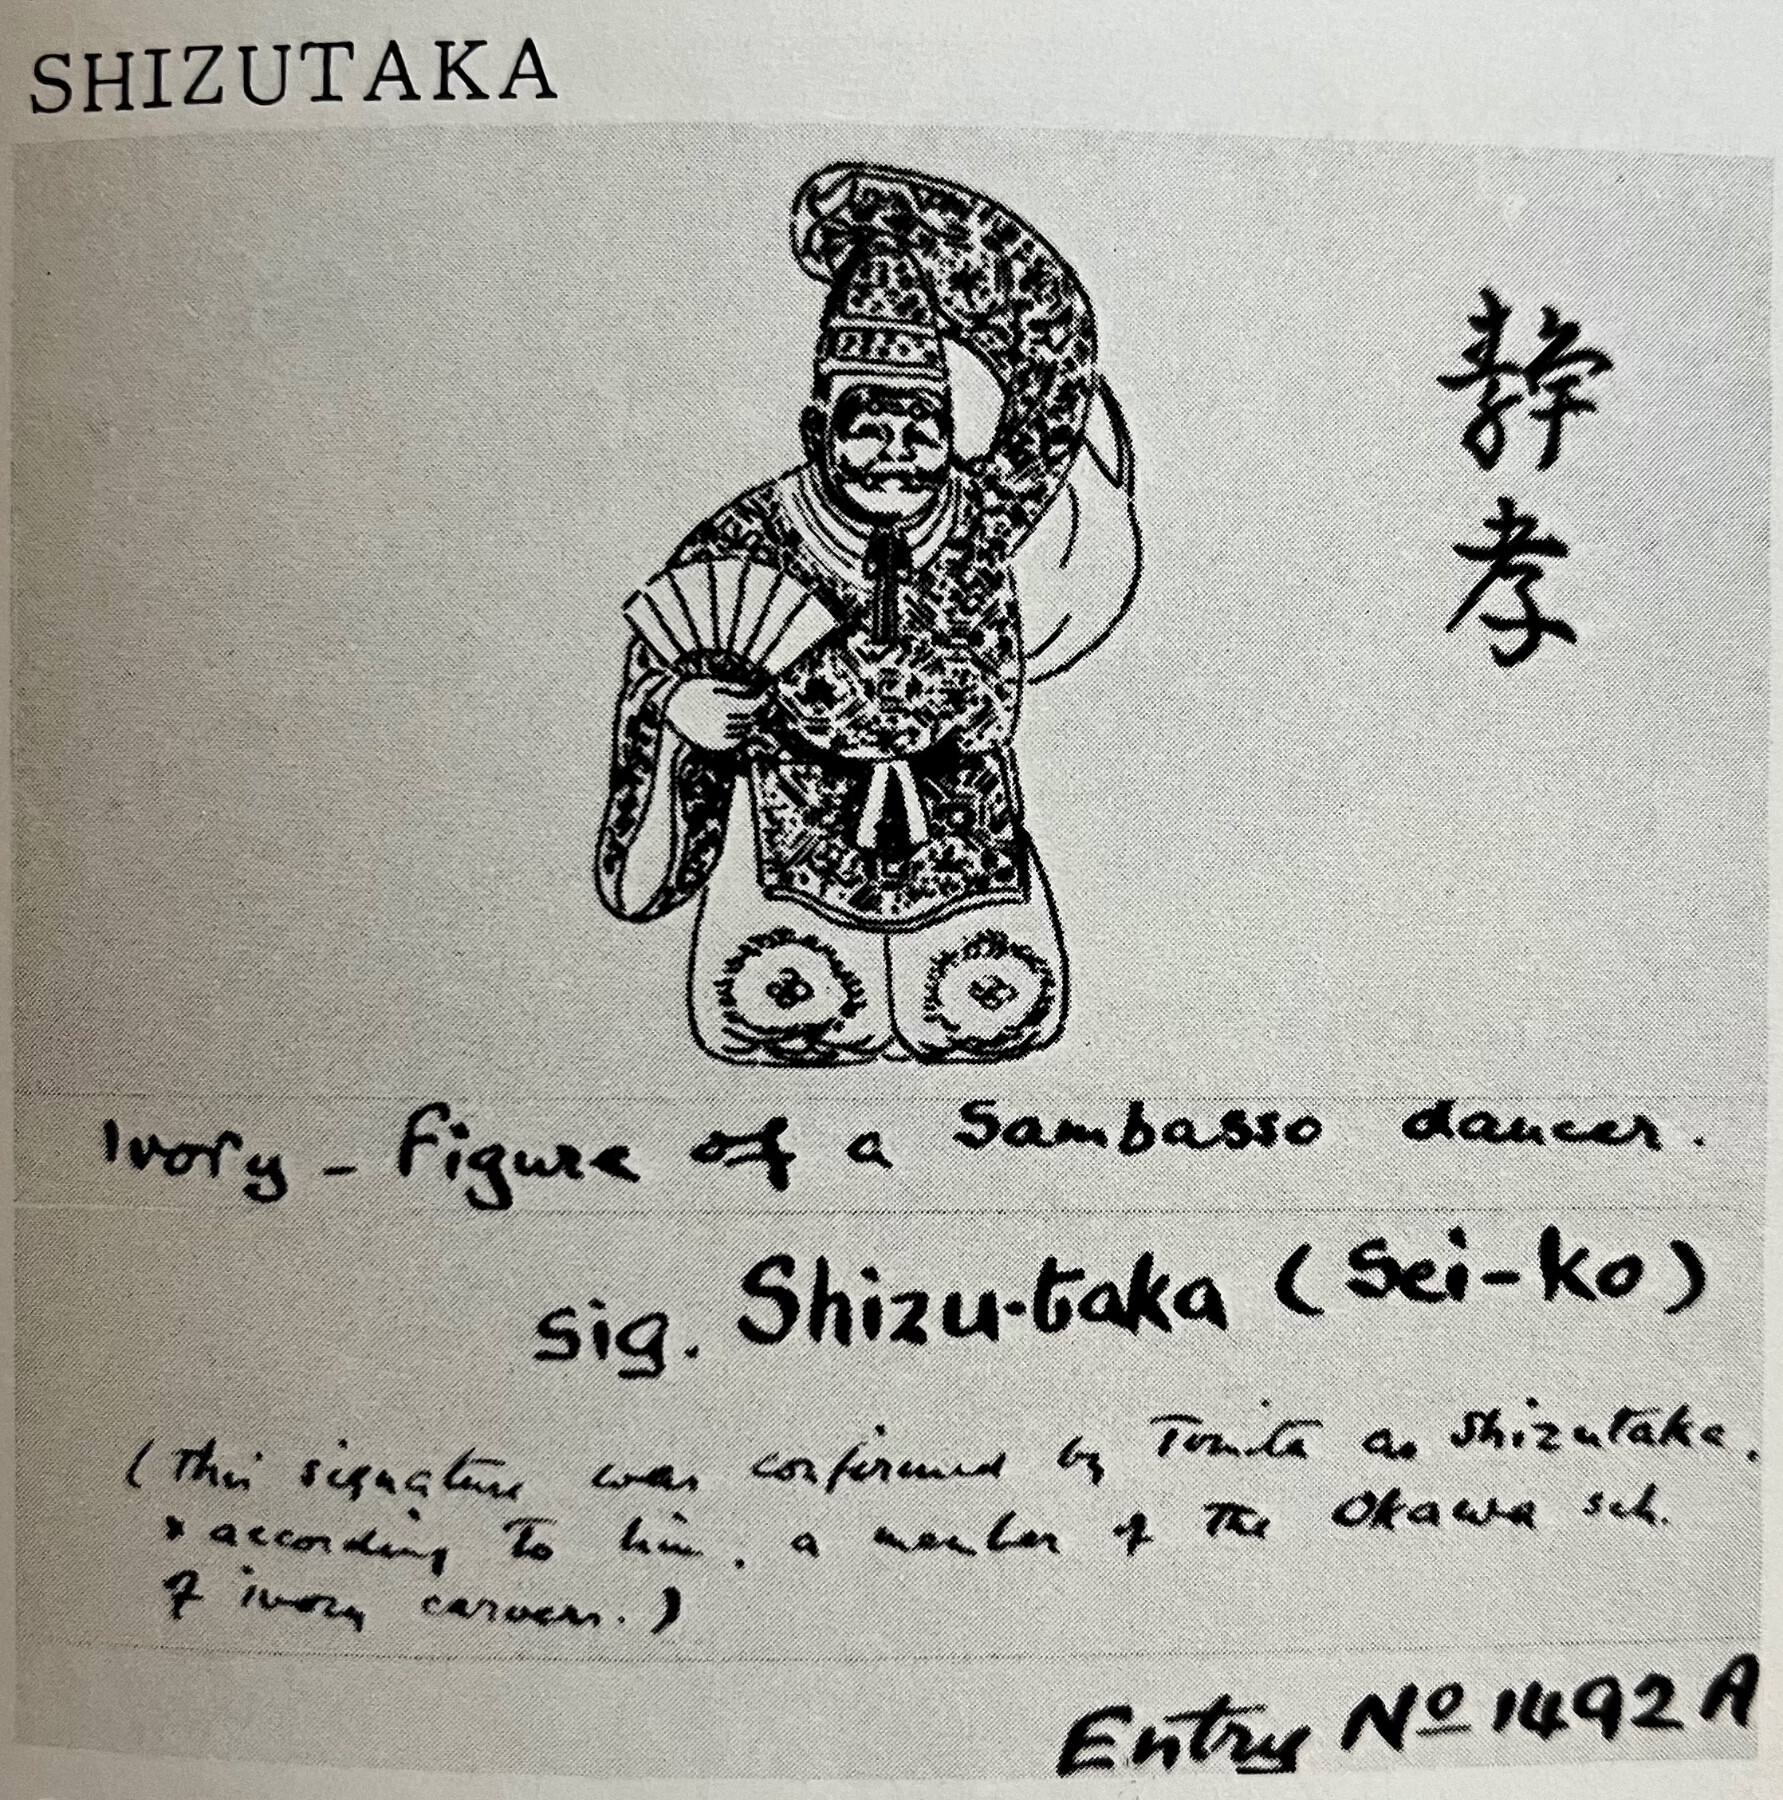 SHIZUTAKA
静
孝
Ivory - Figure of a Sambasso dancer.
sig. Shizu-taka (Sei-ko)
(This signature was confirmed by Tomita as Shizutaka,
& according to him, a member of the Okawa sch.
of ivory carvers.)
Entry Nº 1492 A